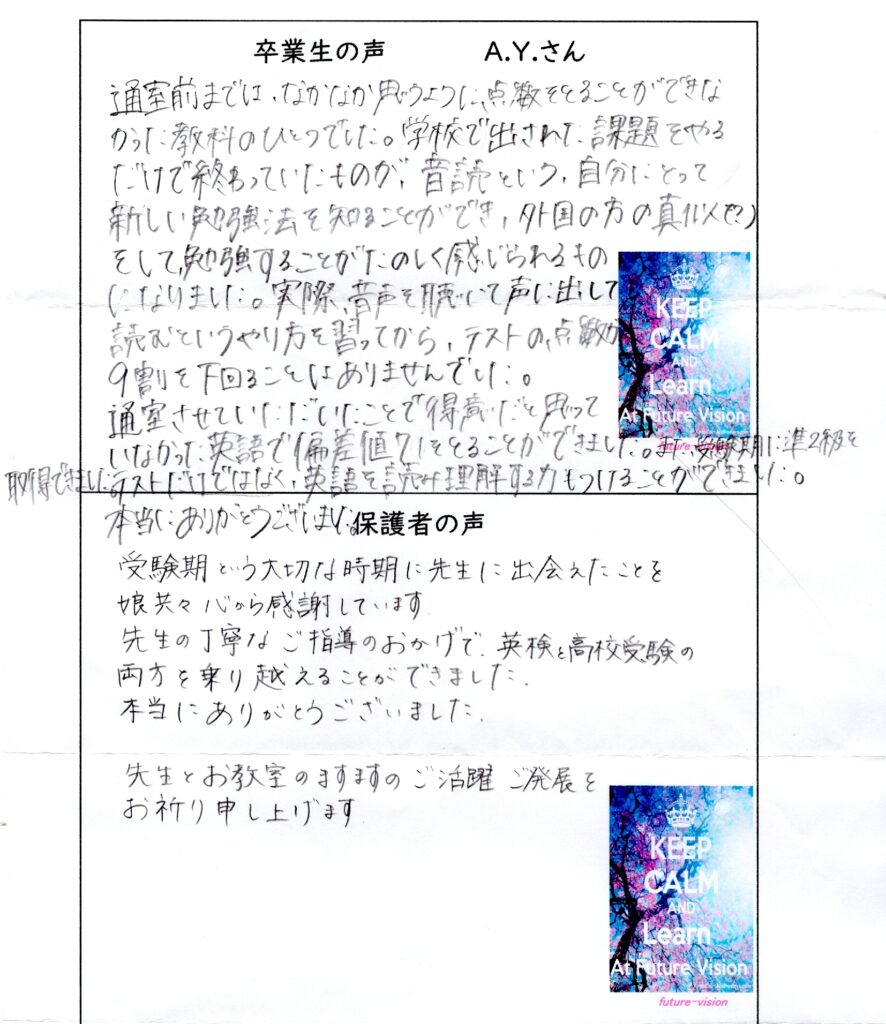 卒業生の声 A.Y.さん
通室前までは、なかなか思うように、点数をとることができな
かった教科のひとつでした。学校で出された課題をやる
だけで終わっていたものが、音読という、自分にとって
新しい勉強法を知ることができ、外国の方の真似(?)
をして勉強することがたのしく感じられるもの
になりました。実際、音声を聴いて声に出して
読むというやり方を習ってから、テストの点数が
9割を下回ることはありませんでした。
通室させていただいたことで得意だと思って
いなかった英語で偏差値71をとることができました。また、受験期に準2級を
取得できました。テストだけではなく、英語を読み理解する力もつけることができました。
本当にありがとうございました。
KEEP
CALM
AND
Learn
At Future Vision
保護者の声
受験期という大切な時期に先生に出会えたことを
娘共々心から感謝しています
先生の丁寧なご指導のおかげで、英検と高校受験の
両方を乗り越えることができました.
本当にありがとうございました.
先生とお教室のますますのご活躍 ご発展を
お祈り申し上げます.
KEEP
CALM
AND
Learn
At Future Vision
future-vision